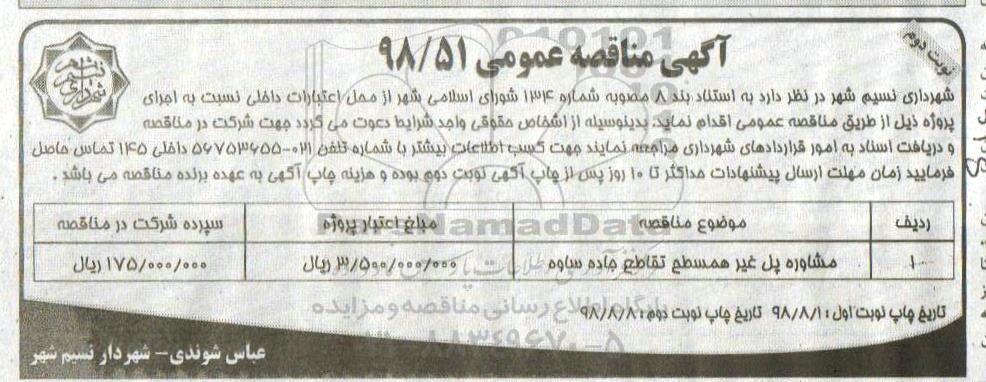 آگهی مناقصه عمومی ۹۸/۵۱
نوبت دوم
شهرداری نسیم شهر
شهرداری نسیم شهر در نظر دارد به استناد بند ۸ مصوبه شماره ۱۳۴ شورای اسلامی شهر از محل اعتبارات داخلی نسبت به اجرای
پروژه ذیل از طریق مناقصه عمومی اقدام نماید. بدینوسیله از اشخاص حقوقی واجد شرایط دعوت می گردد جهت شرکت در مناقصه
و دریافت اسناد به امور قراردادهای شهرداری مراجعه نمایند جهت کسب اطلاعات بیشتر با شماره تلفن ۰۲۱-۵۶۷۵۳۶۵۵ داخلی ۱۴۵ تماس حاصل
فرمایید زمان مهلت ارسال پیشنهادات مداکثر تا ۱۰ روز پس از چاپ آگهی نوبت دوم بوده و هزینه چاپ آگهی به عهده برنده مناقصه می باشد .
ردیف موضوع مناقصه مبلغ اعتبار پروژه سپرده شرکت در مناقصه
۱ مشاوره پل غیر همسطح تقاطع جاده ساوه ۳/۵۰۰/۰۰۰/۰۰۰ ریال ۱۷۵/۰۰۰/۰۰۰ ریال
پایگاه اطلاع رسانی مناقصه و مزایده
تاریخ چاپ نوبت اول : ۹۸/۸/۱ تاریخ چاپ نوبت دوم : ۹۸/۸/۸
۸۸۳۴۹۶۷۰-۵
عباس شوندی – شهردار نسیم شهر